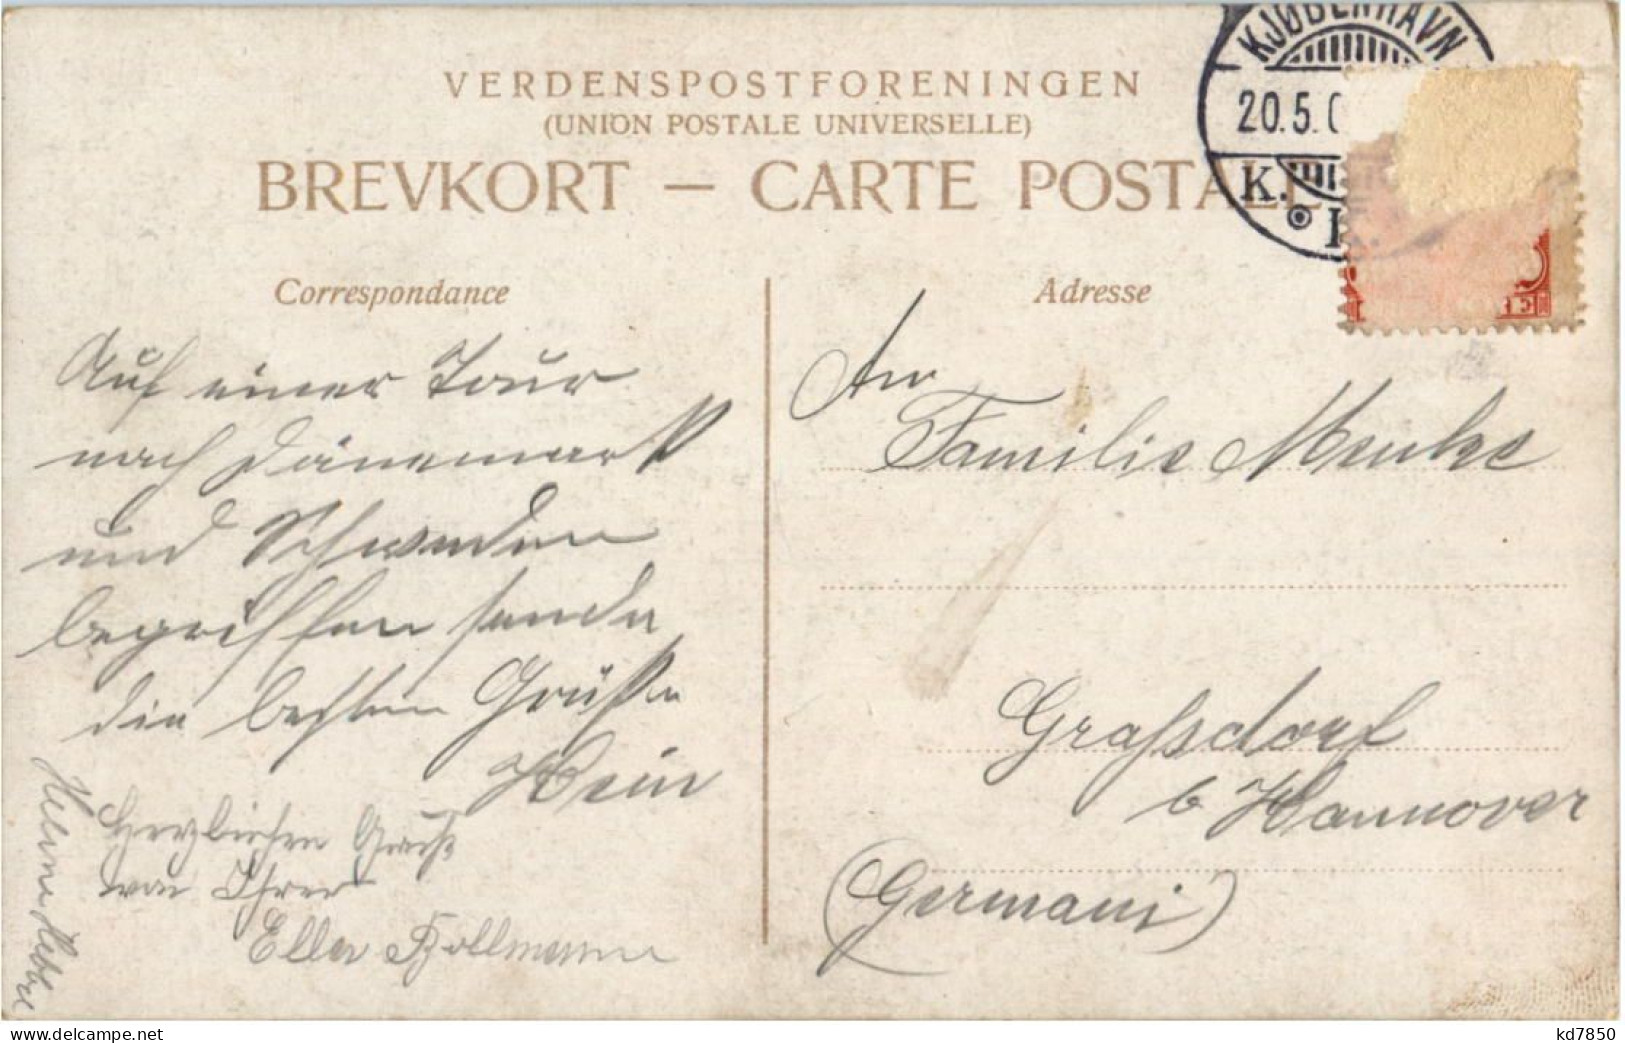 VERDENSPOSTFORENINGEN
(UNION POSTALE UNIVERSELLE)
BREVKORT — CARTE POSTALE
KJØBENHAVN
20.5.0
K.
K.
Correspondance
Auf einer Tour
nach Dänemark
und Schweden
begriffen sende
die besten Grüße
Hein
Herzlichen Gruß
von Ihrer
Ella Bollmann
Adresse
An
Familie Menke
Grafsdorf
b Hannover
(Germani)
www.delcampe.net
kd7850